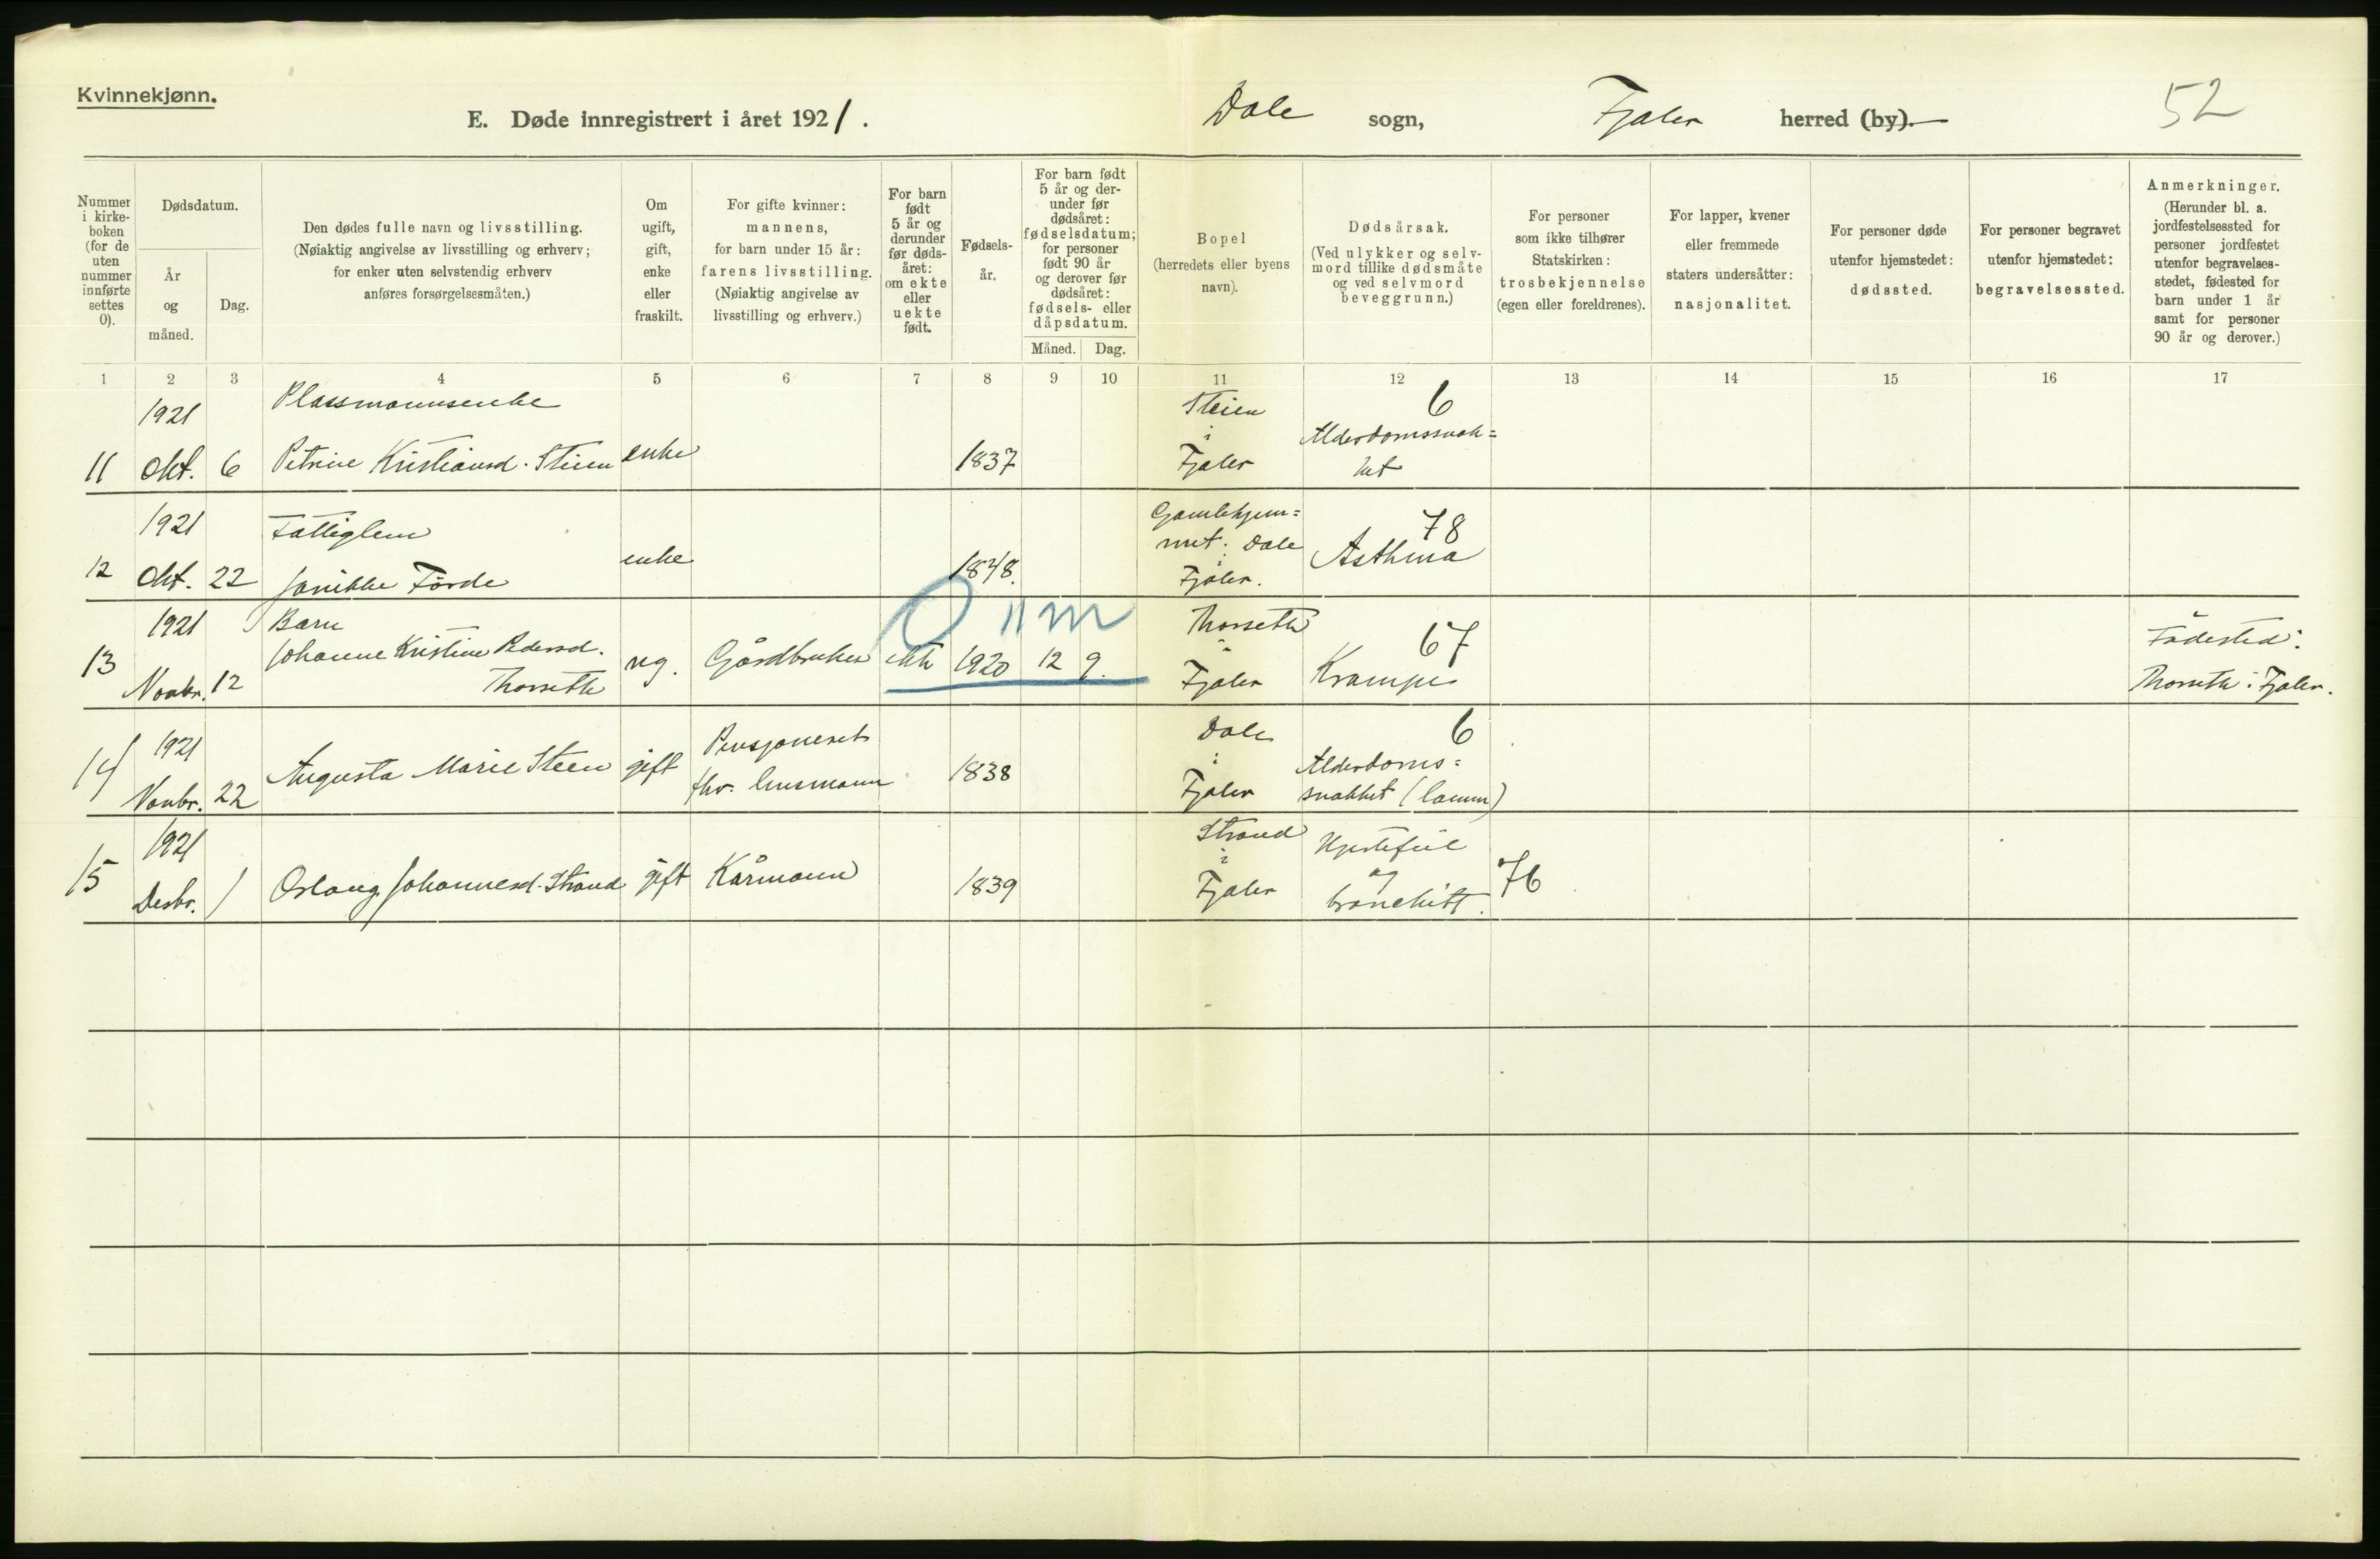 Kvinnekjønn.
E. Døde innregistrert i året 1921.
Dale sogn, Fjaler herred (by).
52
Nummer i kirke-
boken
(for de
uten
nummer
innførte
settes
0).
Dødsdatum.
År
og
måned.
Dag.
Den dødes fulle navn og livsstilling.
(Nøiaktig angivelse av livsstilling og erhverv;
for enker uten selvstendig erhverv
anføres forsørgelsesmåten.)
Om
ugift,
gift,
enke
eller
fraskilt.
For gifte kvinner:
mannens,
for barn under 15 år:
farens livsstilling.
(Nøiaktig angivelse av
livsstilling og erhverv.)
For barn
født
5 år og
derunder
før døds-
året:
om ekte
eller
uekte
født.
Fødsels-
år.
For barn født
5 år og der-
under før
dødsåret:
fødselsdatum;
for personer
født 90 år
og derover før
dødsåret:
fødsels- eller
dåpsdatum.
Måned. Dag.
Bopel
(herredets eller byens
navn).
Dødsårsak.
(Ved ulykker og selv-
mord tillike dødsmåte
og ved selvmord
beveggrunn.)
For personer
som ikke tilhører
Statskirken:
trosbekjennelse
(egen eller foreldrenes).
For lapper, kvener
eller fremmede
staters undersåtter:
nasjonalitet.
For personer døde
utenfor hjemstedet:
dødssted.
For personer begravet
utenfor hjemstedet:
begravelsessted.
Anmerkninger.
(Herunder bl. a.
jordfestelsessted for
personer jordfestet
utenfor begravelses-
stedet, fødested for
barn under 1 år
samt for personer
90 år og derover.)
1 2 3 4 5 6 7 8 9 10 11 12 13 14 15 16 17
1921 Plassmannsenke Steien 6
i Alderdomssvak=
11 Okt. 6 Petrine Kristiansd. Steien enke 1837 Fjaler het
1921 Fattiglem Gamlehjem= 78
enke met. Dale Asthma
i
12 Okt. 22 Janikke Förde 1848. Fjaler.
0 11 m
1921 Barn Thorseth 67 Födested:
13 Johanne Kristine Pedersd. ug. Gårdbruker ekte 1920 12 9. i
Novbr. 12 Thorseth Fjaler Krampe Thorseth i Fjaler.
1921 Pensjonert Dale 6
14 Augusta Marie Steen gift 1838 i Alderdoms=
Novbr. 22 fhv. lensmann Fjaler svakhet (lamm)
1921 Strand Hjertefeil
15 Oslaug Johannesd. Strand gift Kårmann 1839 i og 76
Desbr. 1 Fjaler bronchitt.